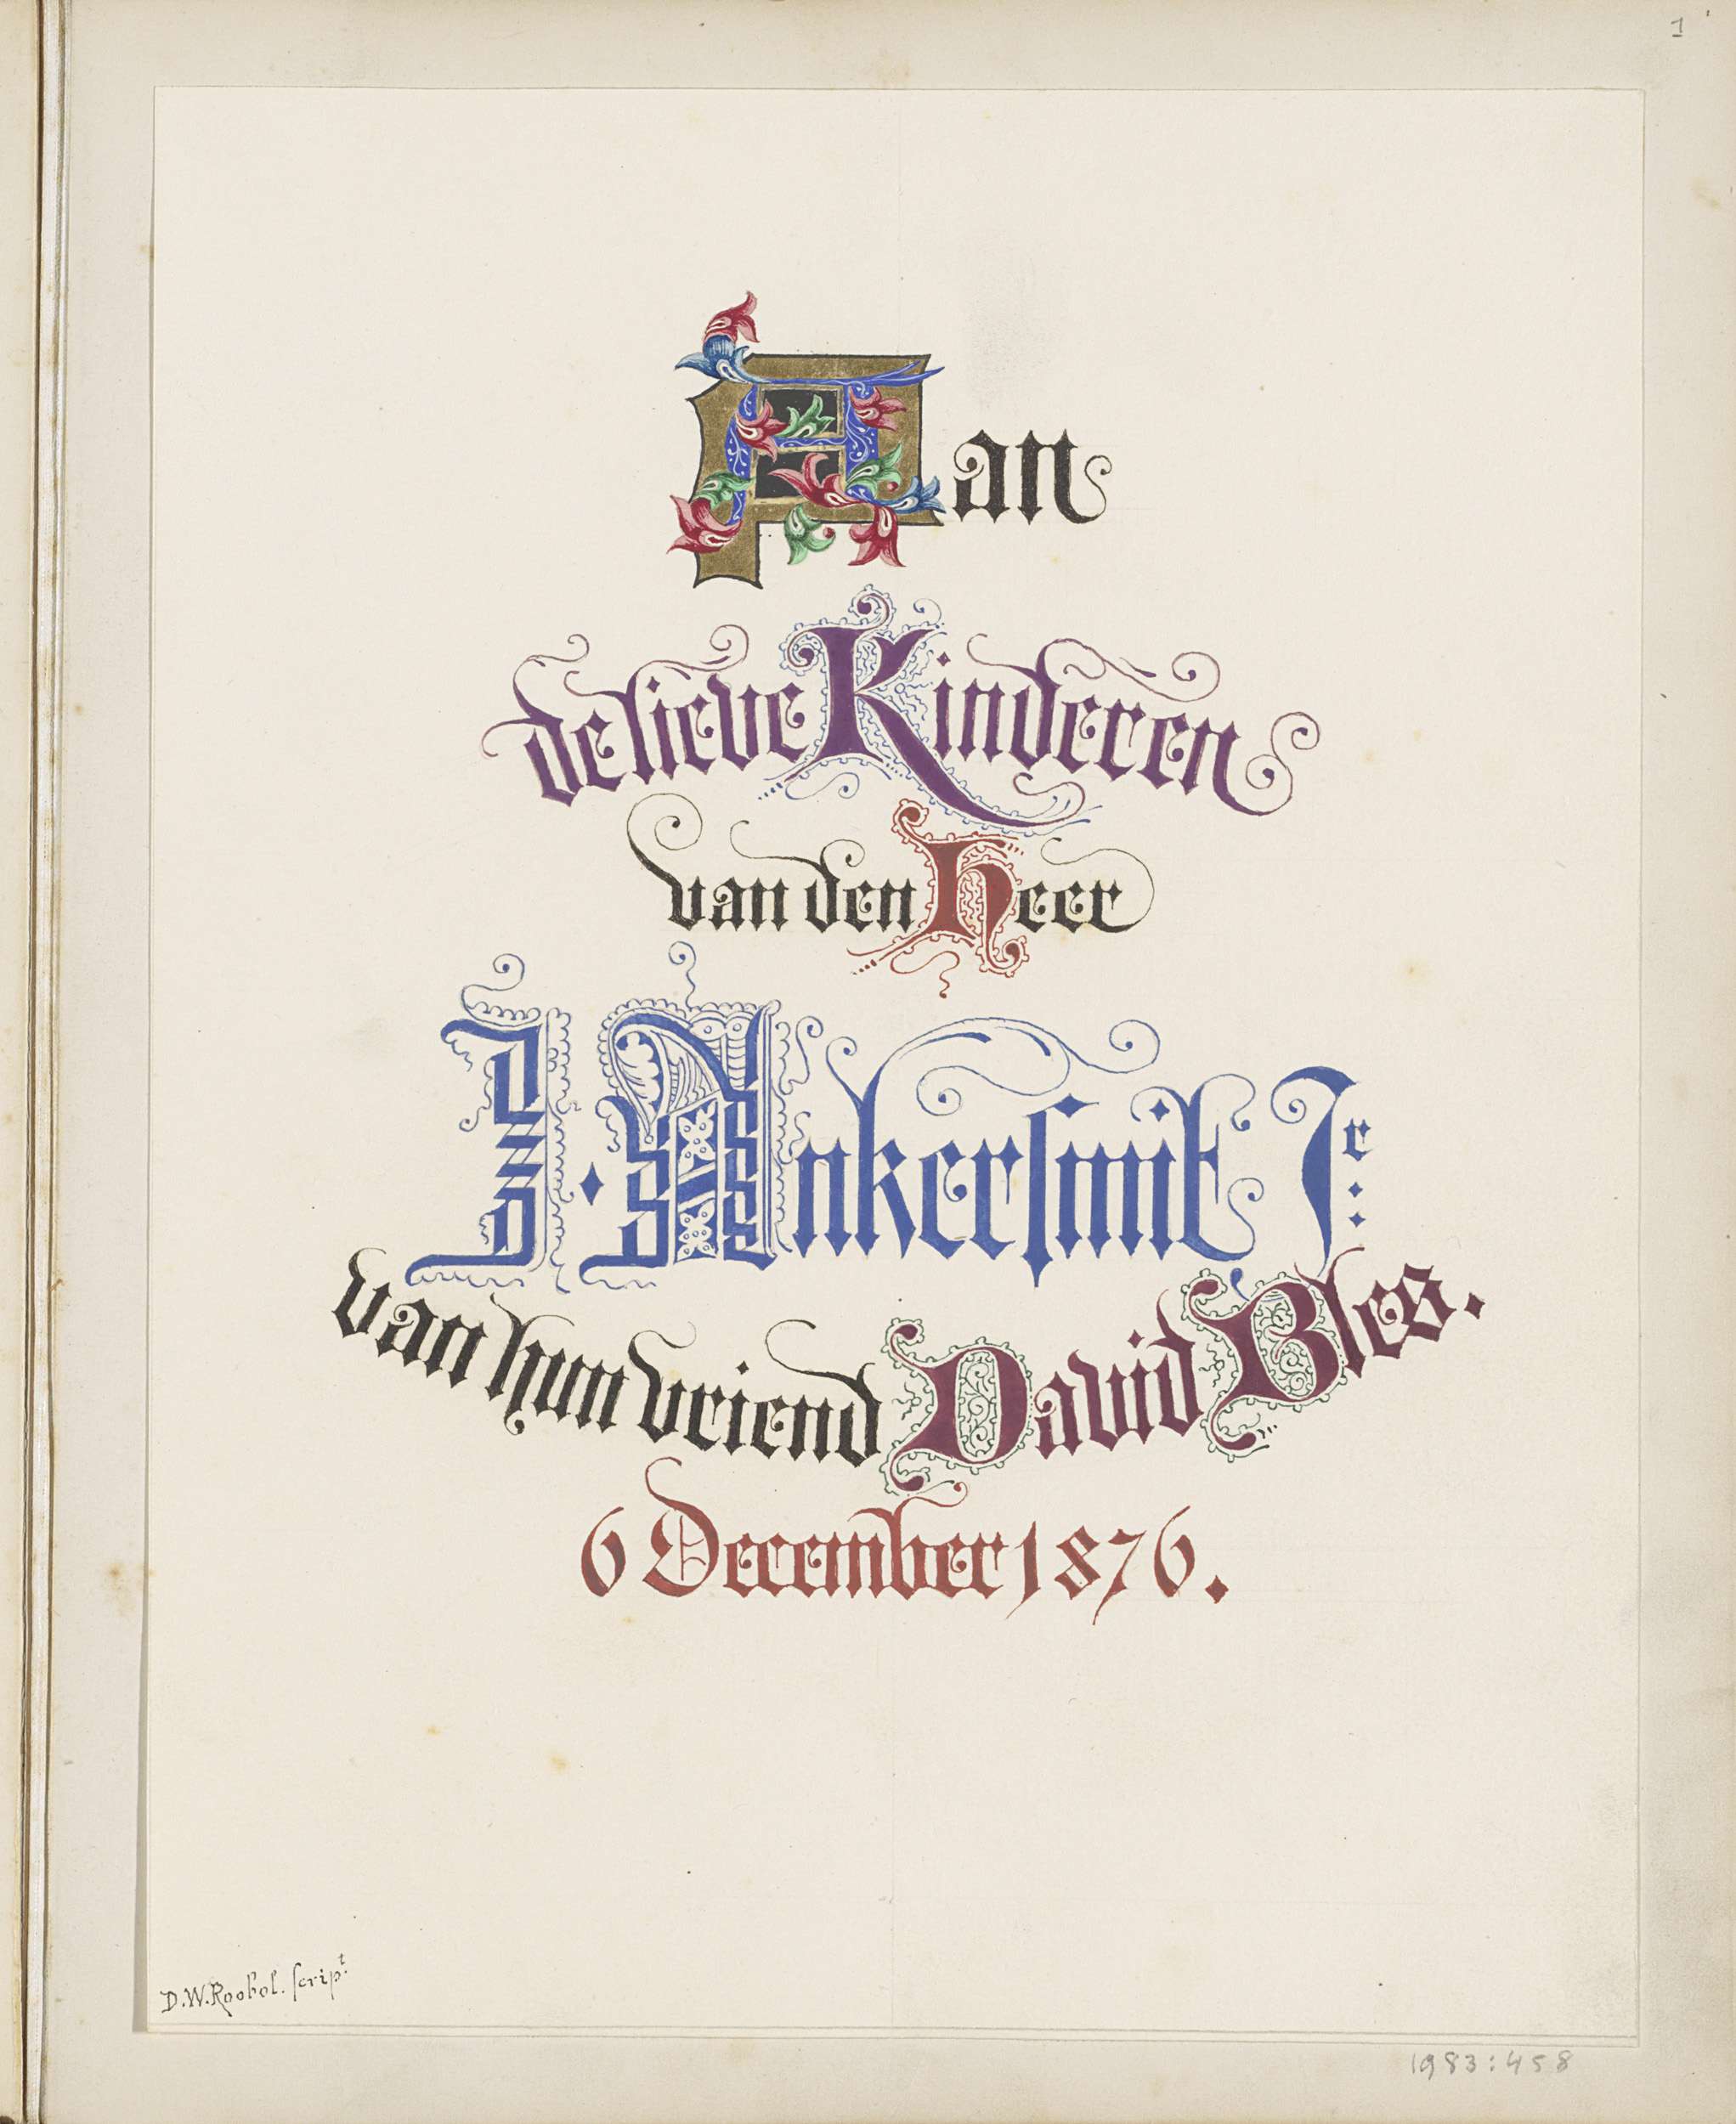 1
Aan
de lieve Kinderen
van den Heer
J. Ankersmit Jr:
van hun vriend David Bles.
6 December 1876.
D.W. Roobol. script.
1983:458